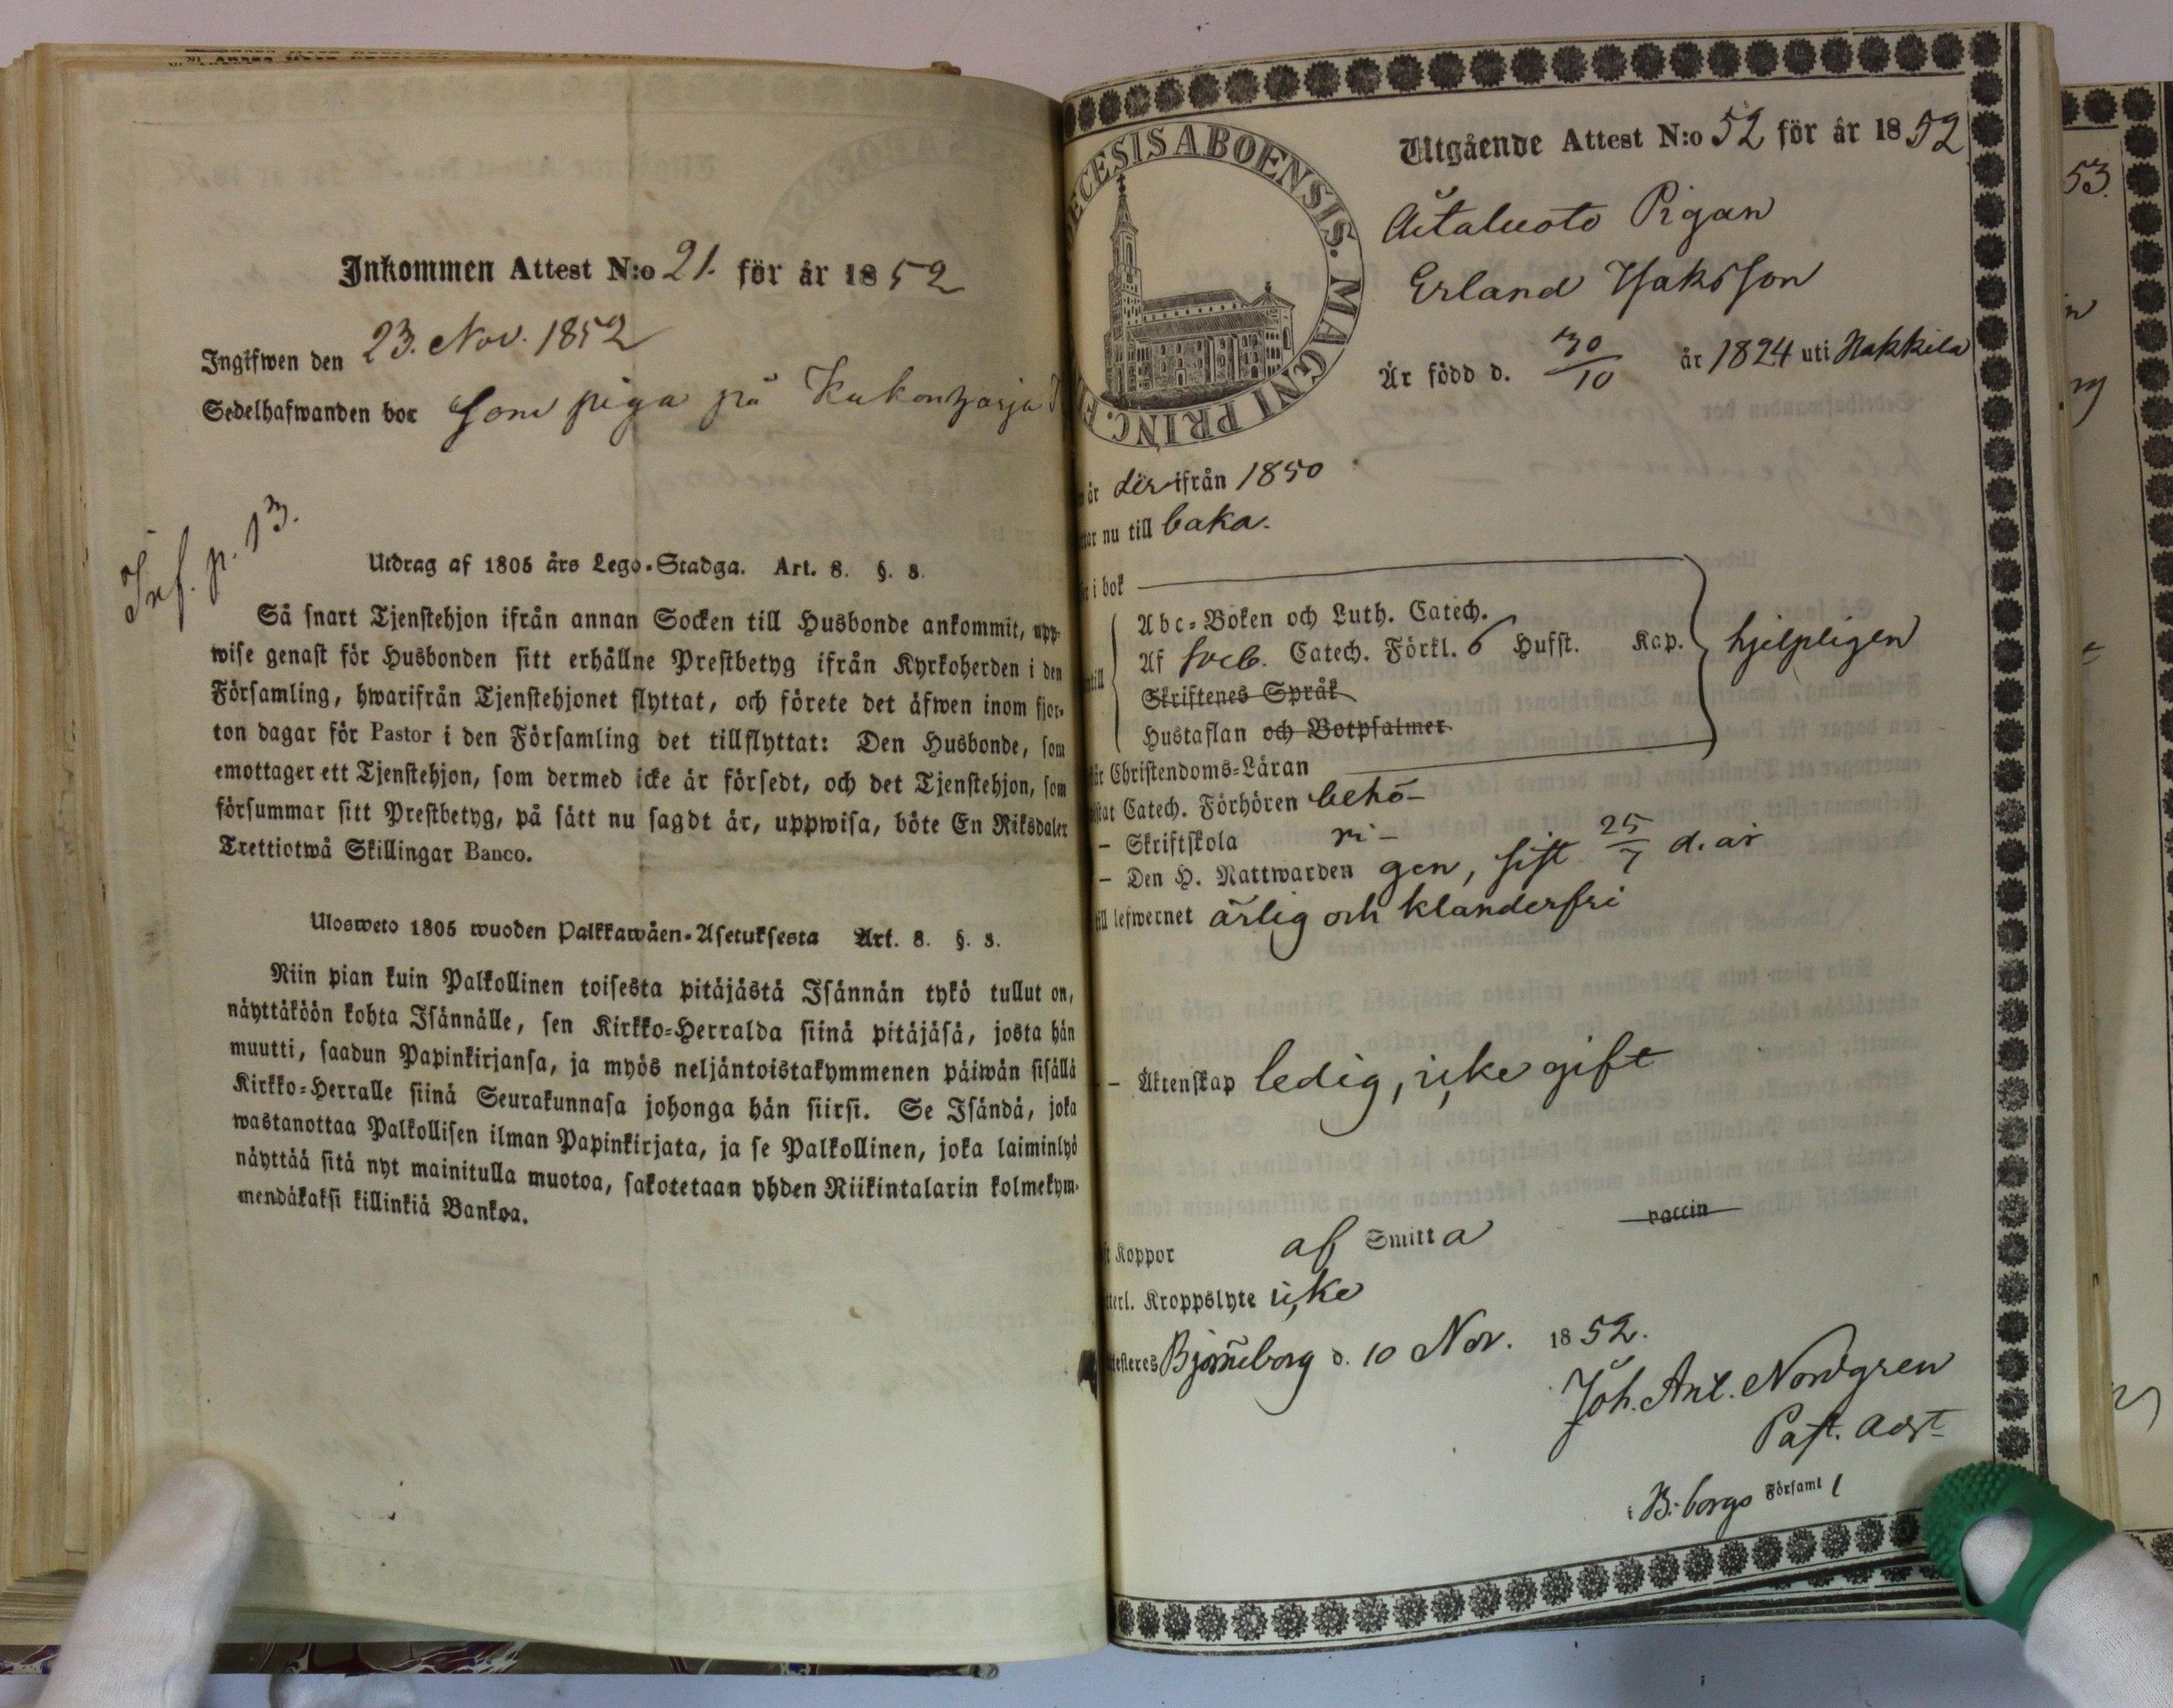 Inkommen Attest N:o 21. för år 1852
Ingifwen den 23. Nov. 1852
Sedelhafwanden bor som piga på Kukonharja
Inf. p. 13.
Utdrag af 1805 års Lego-Stadga. Art. 8. §. 8.
Så snart Tjenstehjon ifrån annan Socken till Husbonde ankommit, upp-
wise genast för Husbonden sitt erhållne Prestbetyg ifrån Kyrkoherden i den
Församling, hwarifrån Tjenstehjonet flyttat, och förete det äfwen inom fjor-
ton dagar för Pastor i den Församling det tillflyttat: Den Husbonde, som
emottager ett Tjenstehjon, som dermed icke är försedt, och det Tjenstehjon, som
försummar sitt Prestbetyg, på sätt nu sagdt är, uppwisa, böte En Riksdaler
Trettiotwå Skillingar Banco.
Ulosweto 1805 wuoden Palkkawäen-Asetuksesta Art. 8. §. 8.
Niin pian kuin Palkollinen toisesta pitäjästä Isännän tykö tullut on,
näyttäköön kohta Isännälle, sen Kirkko-Herralda siinä pitäjäsä, josta hän
muutti, saadun Papinkirjansa, ja myös neljäntoistakymmenen päiwän sisällä
Kirkko-Herralle siinä Seurakunnasa johonga hän siirsi. Se Isändä, joka
wastanottaa Palkollisen ilman Papinkirjata, ja se Palkollinen, joka laiminlyö
näyttää sitä nyt mainitulla muotoa, sakotetaan yhden Riikintalarin kolmekym-
mendäkaksi killinkiä Bankoa.
ECESIS ABOENSIS. MAGNI PRINC. F
Utgående Attest N:o 52 för år 1852
Äitaluoto Pigan
Erland Isaksson
Är född d. 30/10 år 1824 uti Nakkila
är här ifrån 1850
nu till baka.
i bok
Abc-Boken och Luth. Catech.
Af Sveb. Catech. Förkl. 6 Hufst. Kap. hjelpligen
till
Skriftenes Språk
Hustaflan och Botpsalmer
Christendoms-Läran
Catech. Förhören behö-
— Skriftskola ri-
— Den H. Nattwarden gen, sist 25/7 d. år
till lefwernet ärlig och klanderfri
— Äktenskap ledig, icke gift
Koppor af Smitta vaccin
Kroppslyte icke
Björneborg d. 10 Nov. 1852.
Joh. Ant. Nordgren
Past. adjt
i B:borgs Församl
53.